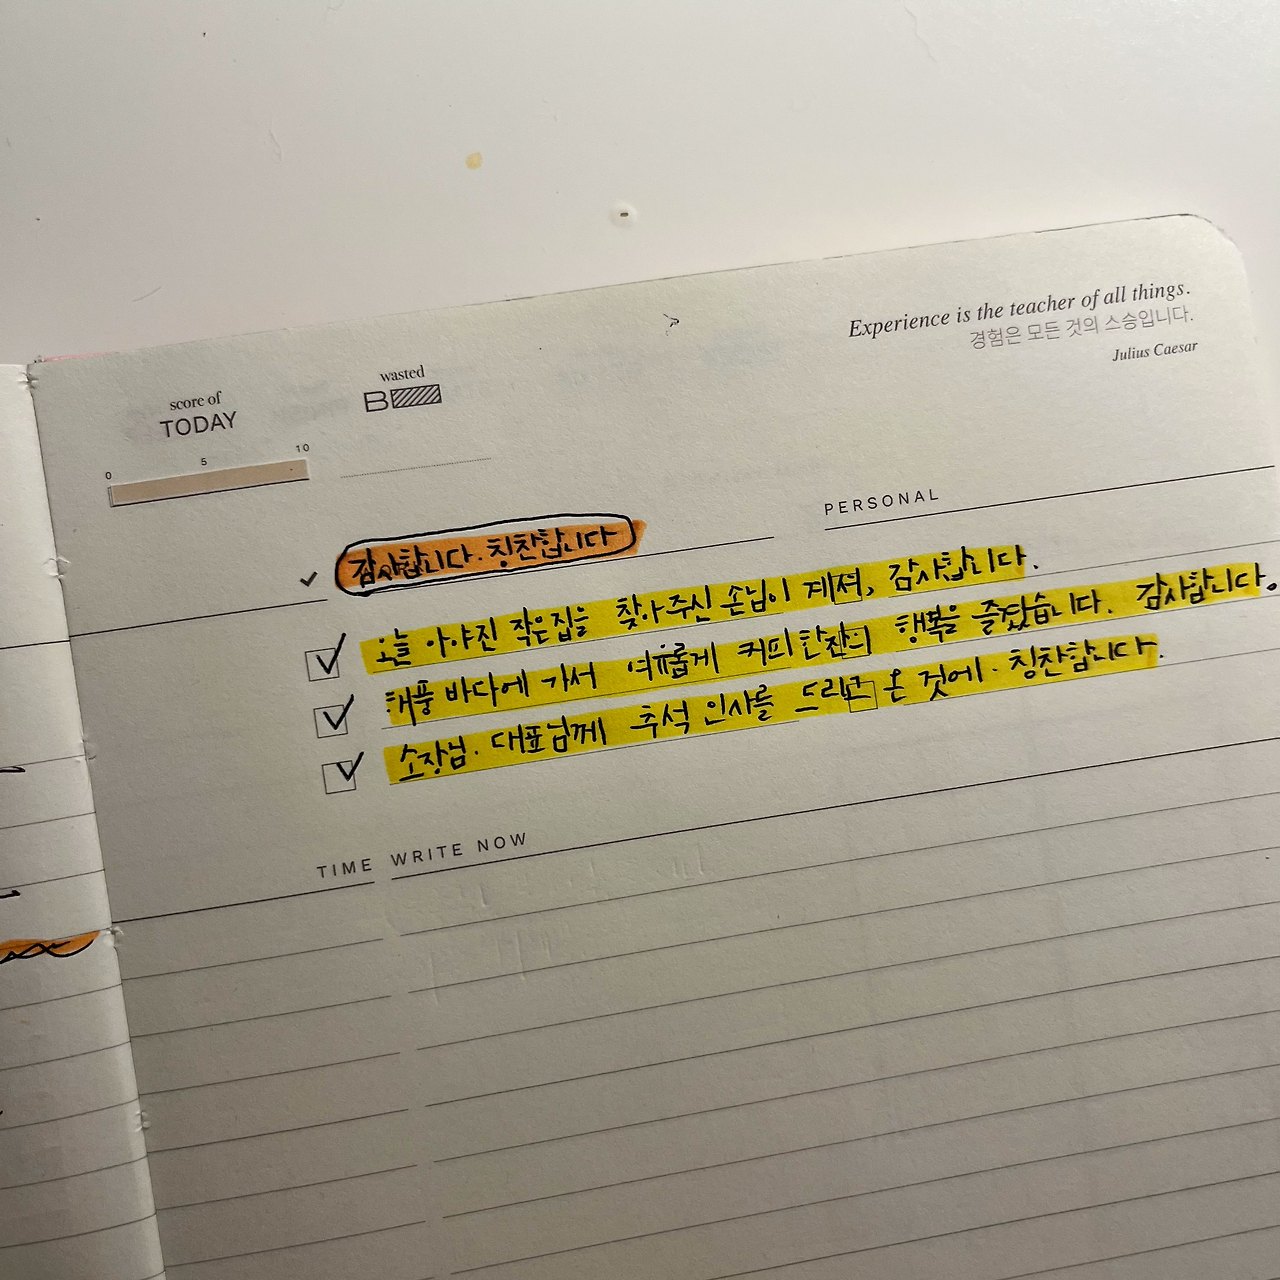 Experience is the teacher of all things.
경험은 모든 것의 스승입니다.
Julius Caesar
score of
TODAY
0 5 10
wasted
B
PERSONAL
감사합니다. 칭찬합니다
오늘 아야진 작은집을 찾아주신 손님이 계셔, 감사합니다.
해풍 바다에 가서 여유롭게 커피한잔의 행복을 즐겼습니다. 감사합니다.
소장님. 대표님께 추석 인사를 드리고 온 것에. 칭찬합니다.
TIME WRITE NOW